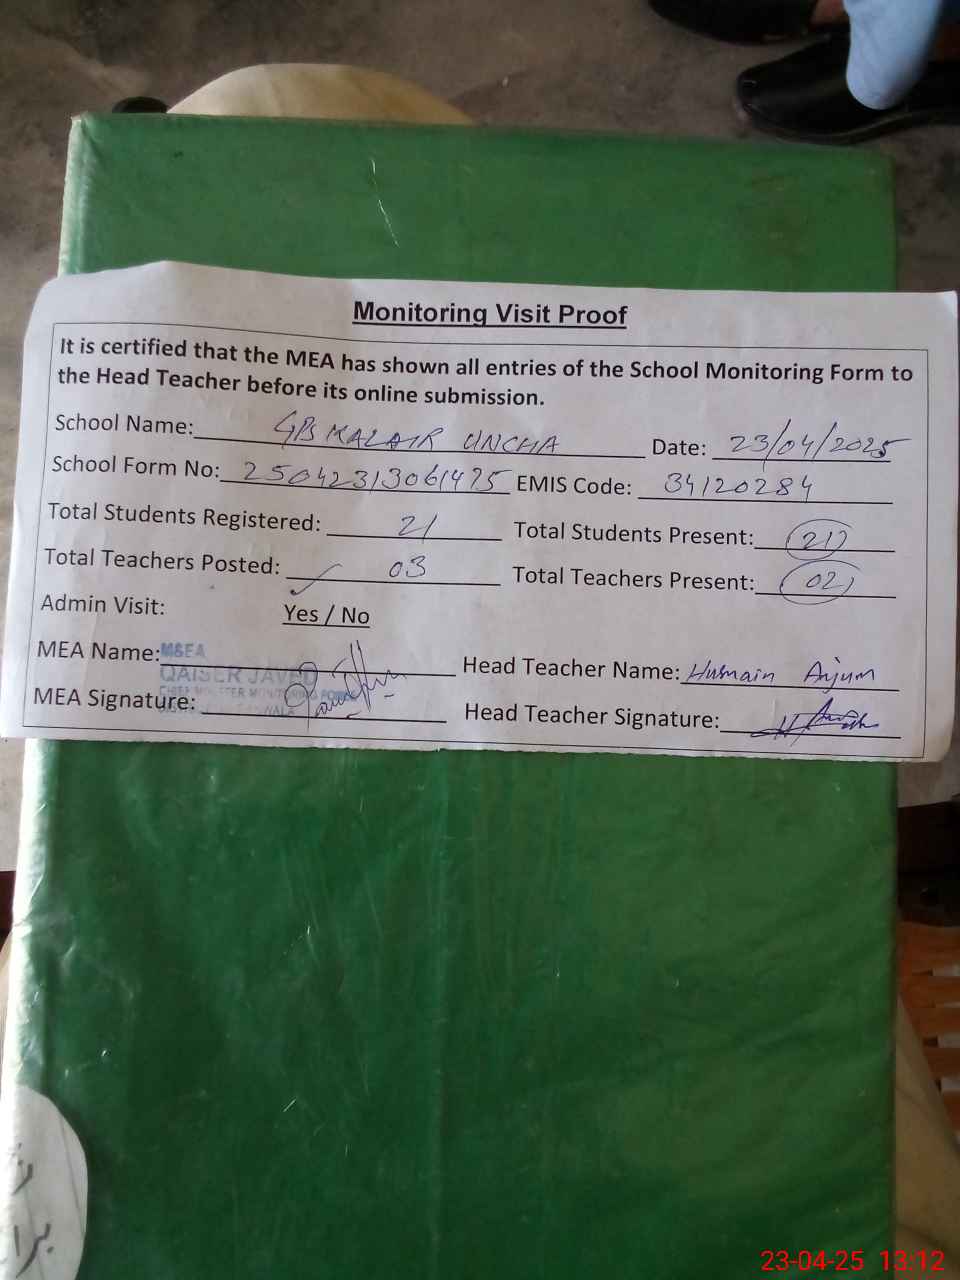 Monitoring Visit Proof
It is certified that the MEA has shown all entries of the School Monitoring Form to
the Head Teacher before its online submission.
School Name: GPS KALAIR UNCHA Date: 23/04/2025
School Form No: 25042313061475 EMIS Code: 34120284
Total Students Registered: 21 Total Students Present: 21
Total Teachers Posted: 03 Total Teachers Present: 02
Admin Visit: Yes / No
MEA Name: M&EA
QAISER JAVED
CHIEF MINISTER MONITORING FORCE
Head Teacher Name: Husnain Anjum
MEA Signature: Head Teacher Signature:
23-04-25 13:12